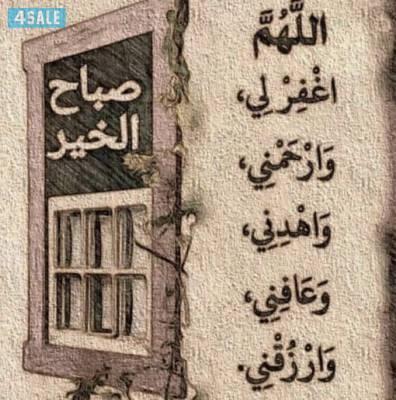 4SALE
صباح
الخير
اللَّهُمَّ
اغْفِرْ لِي،
وَارْحَمْنِي،
وَاهْدِنِي،
وَعَافِنِي،
وَارْزُقْنِي.